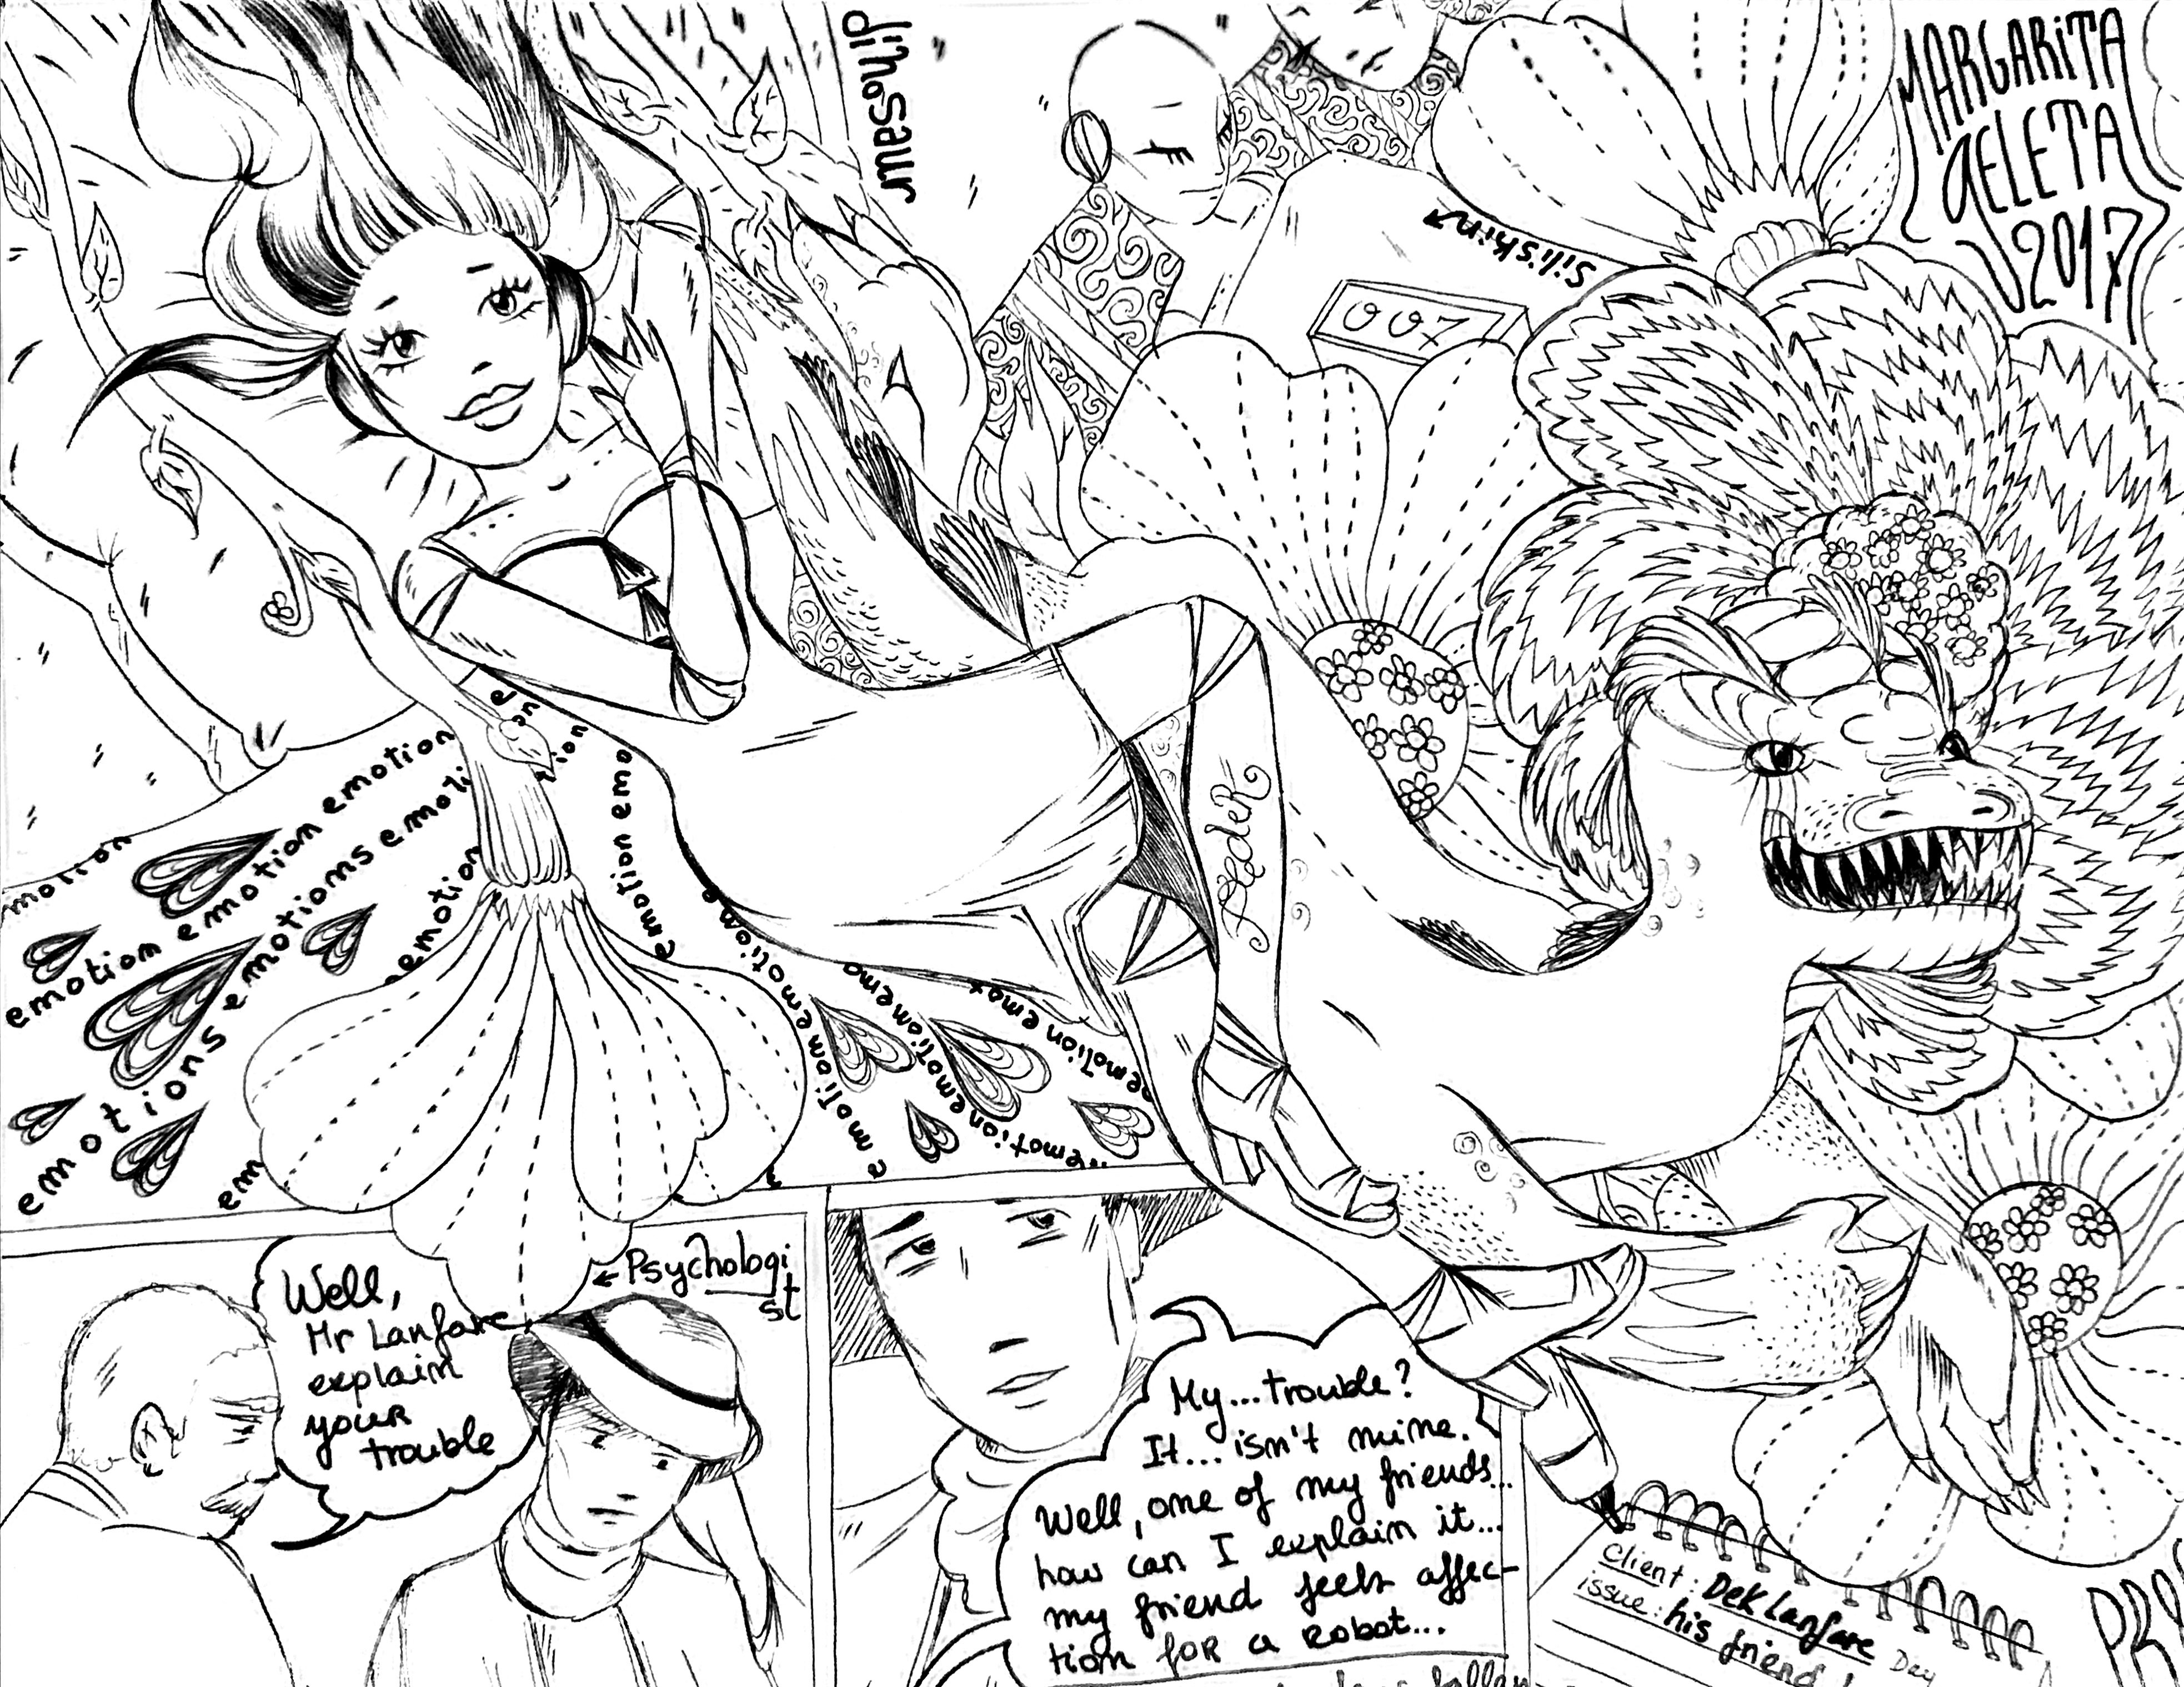 dinosaur
MARGARITA
GELETA
2017
Sili'skin
007
emotion emotion
motion
emotion emotion emotion
emotions emotions emoti
emotion
emotion emo
emotionemotione
emotionemotionemo
emotion emot
emotion
em
Well,
Mr Lanfare
explain
your
trouble
← Psychologi
st
My...trouble?
It... isn't mine.
Well, one of my friends...
how can I explain it...
my friend feels affec-
tion for a robot...
Client: Dek Lanfare
issue: his friend
Day